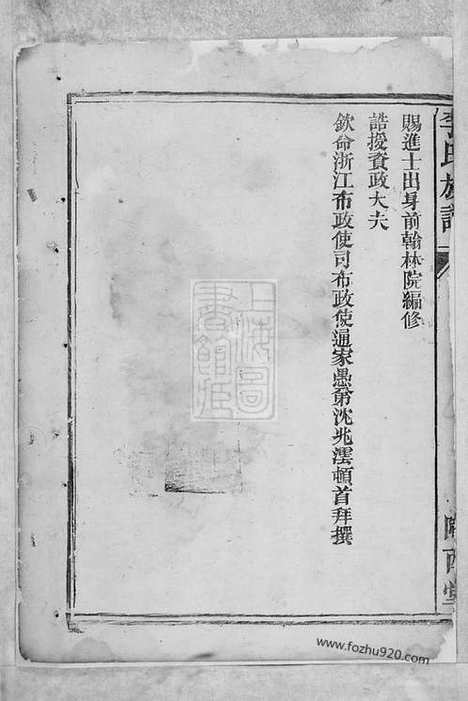 李氏族譜
賜進士出身前翰林院編修
誥授資政大夫
欽命浙江布政使司布政使通家愚弟沈兆澐頓首拜撰
隴西堂
www.fozhu920.com